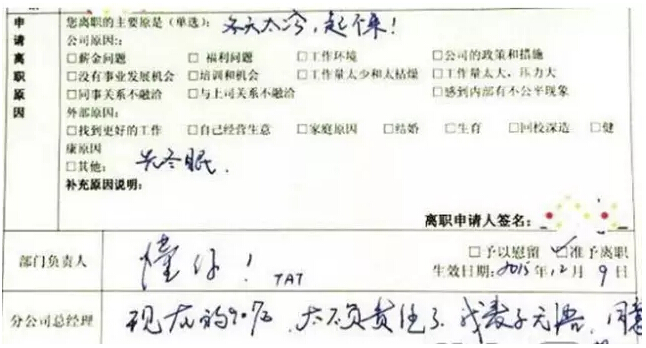 申请离职原因
您离职的主要原是（单选）：冬天太冷，起不来！
公司原因:：
□薪金问题 □福利问题 □工作环境 □公司的政策和措施
□没有事业发展机会 □培训和机会 □工作量太少和太枯燥 □工作量太大，压力大
□同事关系不融洽 □与上司关系不融洽 □感到内部有不公平现象
外部原因：
□找到更好的工作 □自己经营生意 □家庭原因 □结婚 □生育 □回校深造 □健
康原因
□其他： 去冬眠.
补充原因说明：
离职申请人签名：
部门负责人 懂你！ TAT □予以慰留 ☑准予离职
生效日期：2015年12月9日
分公司总经理 现在的90后，太不负责任了，我表示无语，同意